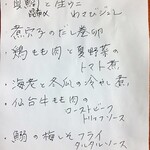 真鯛と生うに
昆布〆 わさびジュレ
・煮穴子のだし巻卵
・鶏もも肉と夏野菜の
トマト煮
・海老と冬瓜の冷やし煮
・仙台牛もも肉の
ローストビーフ
トリュフソース
・鯛の梅しそフライ
タルタルソース